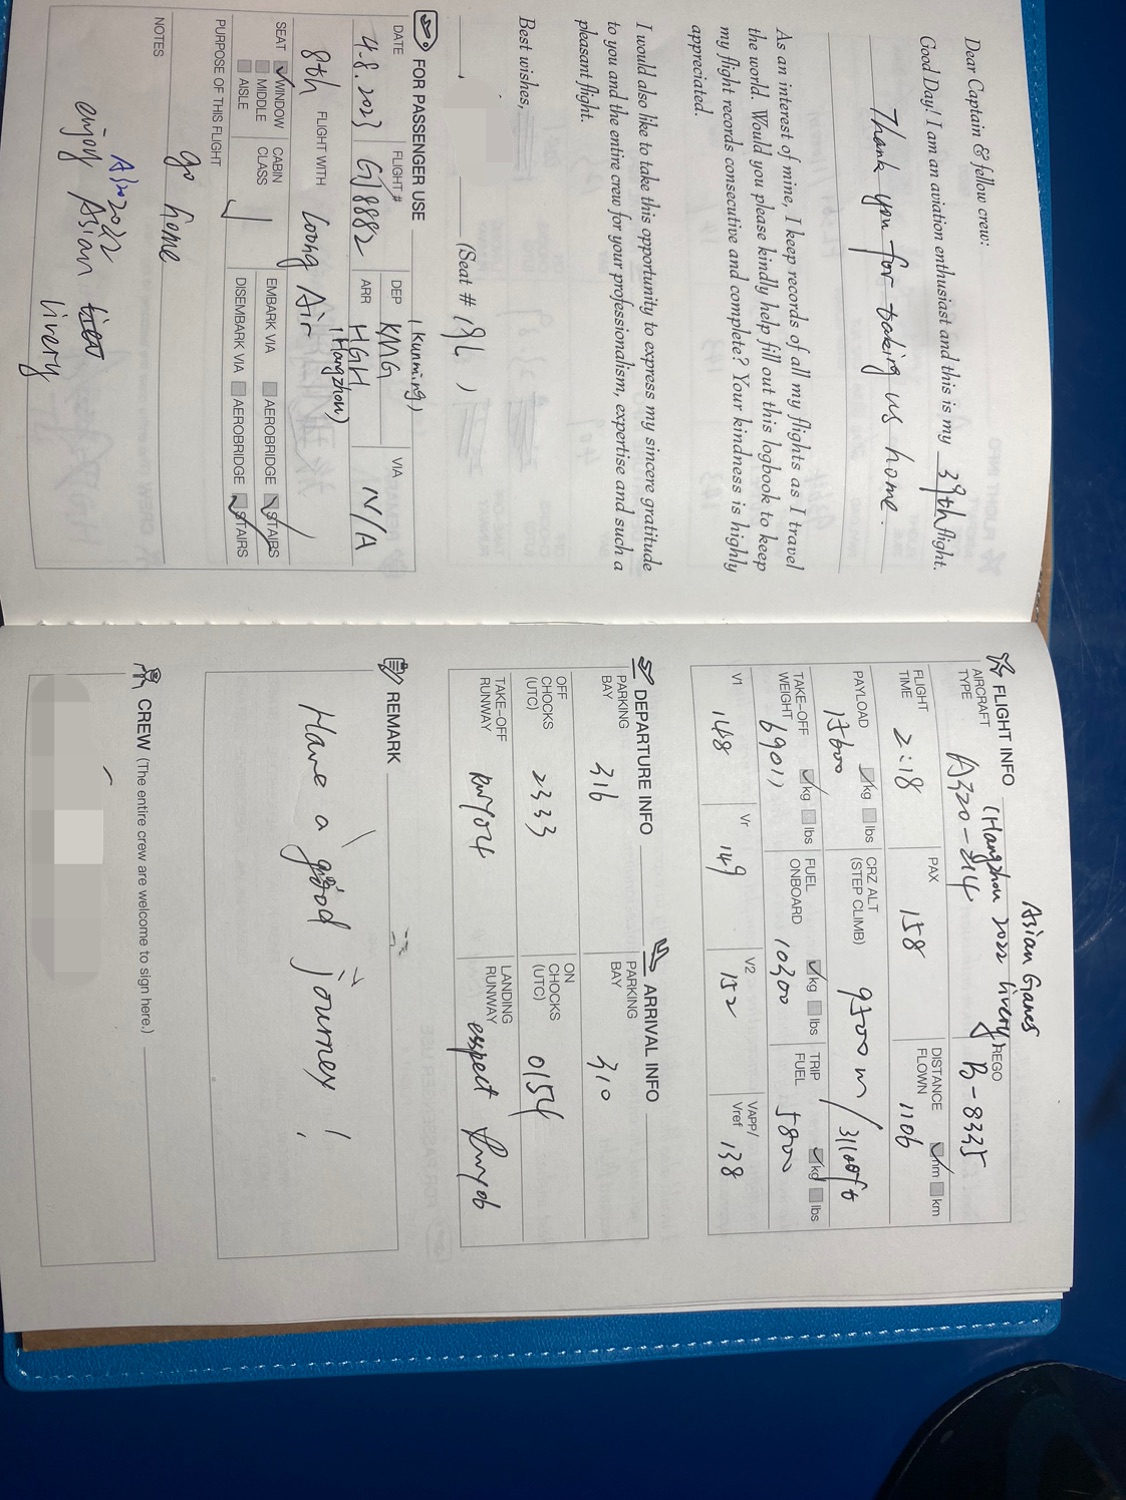 Dear Captain & fellow crew:
Good Day! I am an aviation enthusiast and this is my 39th flight.
Thank you for taking us home.
As an interest of mine, I keep records of all my flights as I travel
the world. Would you please kindly help fill out this logbook to keep
my flight records consecutive and complete? Your kindness is highly
appreciated.
I would also like to take this opportunity to express my sincere gratitude
to you and the entire crew for your professionalism, expertise and such a
pleasant flight.
Best wishes,
, (Seat # 19L )
FOR PASSENGER USE
DATE 4.8.2023 FLIGHT # GJ8882 DEP KMG (Kunming) VIA N/A
ARR HGH (Hangzhou)
8th FLIGHT WITH Loong Air
SEAT WINDOW MIDDLE AISLE
CABIN CLASS J
EMBARK VIA AEROBRIDGE STAIRS
DISEMBARK VIA AEROBRIDGE STAIRS
PURPOSE OF THIS FLIGHT
go home
NOTES
enjoy Asian
livery
Asian Games
FLIGHT INFO (Hangzhou 2022 livery)
AIRCRAFT TYPE A320-214 REGO B-8335
FLIGHT TIME 2:18 PAX 158 DISTANCE FLOWN 1106 nm km
PAYLOAD 17600 kg lbs CRZ ALT (STEP CLIMB) 9500m/31100ft
TAKE-OFF WEIGHT 69011 kg lbs FUEL ONBOARD 10300 kg lbs TRIP FUEL 5800 kg lbs
V1 148 Vr 149 V2 152 VAPP/Vref 138
DEPARTURE INFO ARRIVAL INFO
PARKING BAY 316 PARKING BAY 310
OFF CHOCKS (UTC) 2333 ON CHOCKS (UTC) 0154
TAKE-OFF RUNWAY RWY04 LANDING RUNWAY expect RWY06
REMARK
Have a good journey!
CREW (The entire crew are welcome to sign here.)